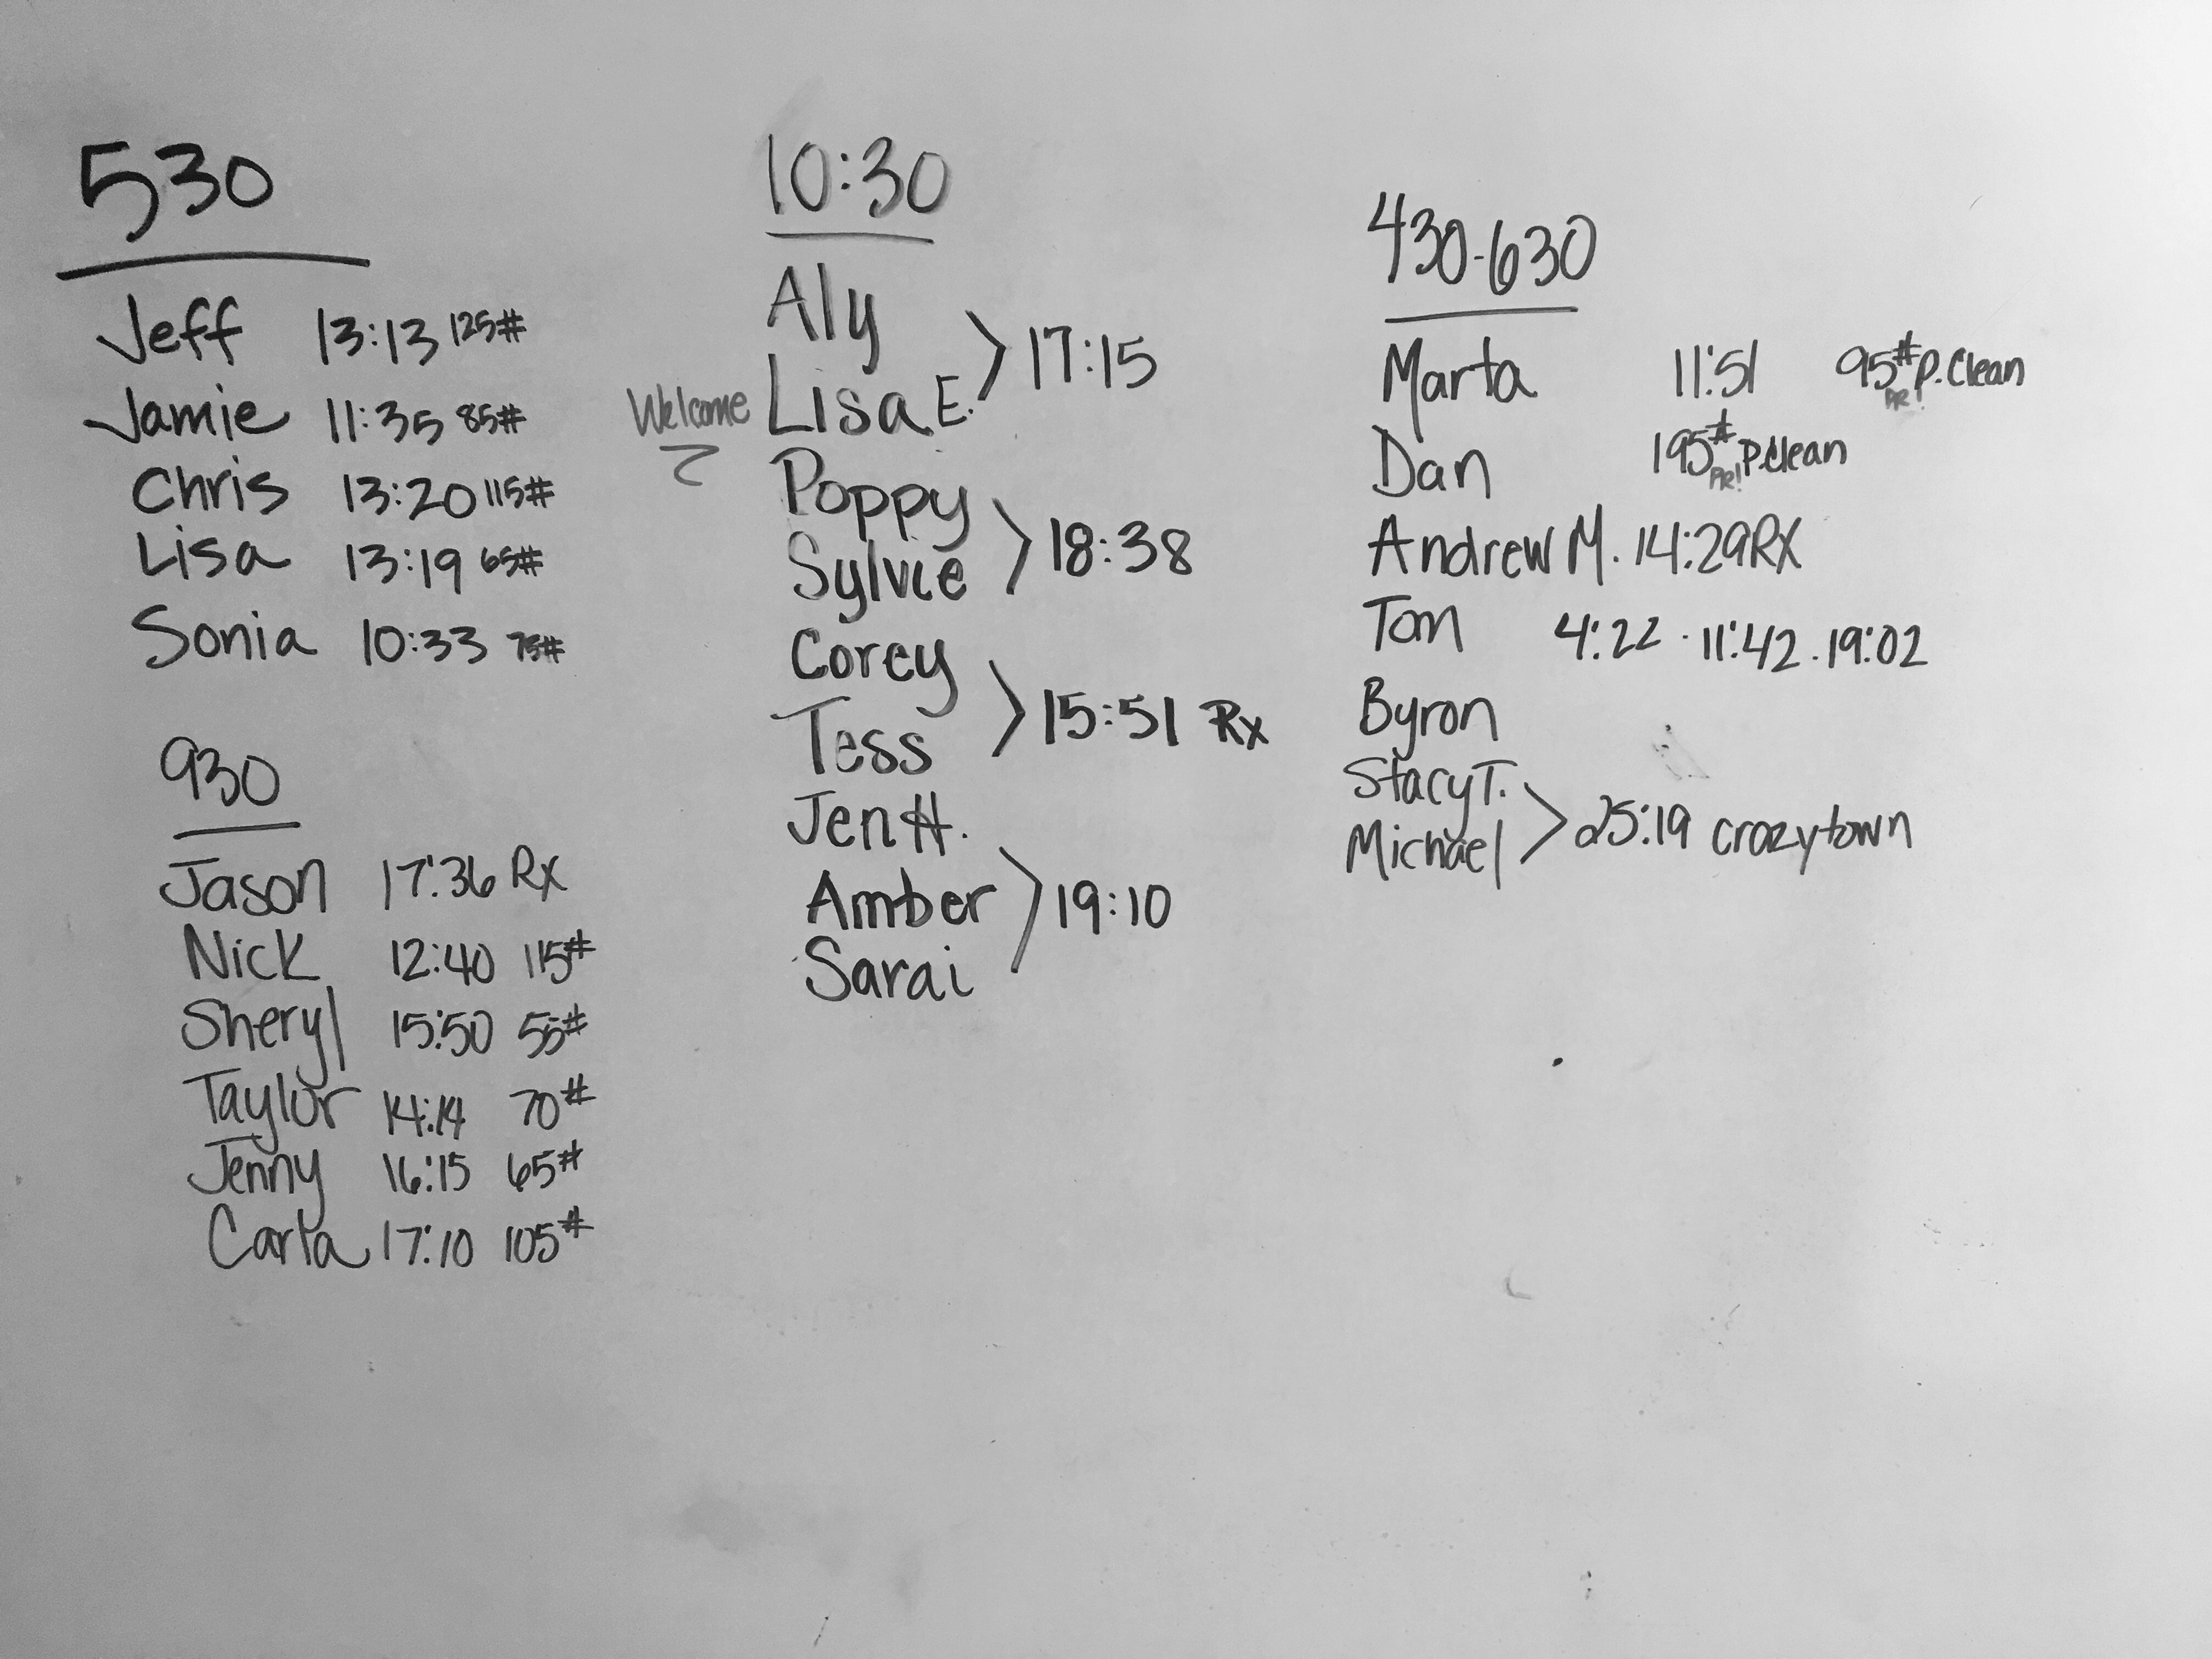 530
Jeff 13:13 125#
Jamie 11:35 85#
Chris 13:20 115#
Lisa 13:19 65#
Sonia 10:33 75#
930
Jason 17:36 Rx
Nick 12:40 115#
Sheryl 15:50 55#
Taylor 14:14 70#
Jenny 16:15 65#
Carla 17:10 105#
10:30
Aly
17:15
Welcome Lisa E.
Poppy
18:38
Sylvie
Corey
15:51 Rx
Tess
Jen H.
Amber 19:10
Sarai
430-630
Marta 11:51 95# P. Clean
PR!
Dan 195# P. Clean
PR!
Andrew M. 14:29 RX
Tom 4:22 . 11:42 . 19:02
Byron
Stacy T.
25:19 crazytown
Michael